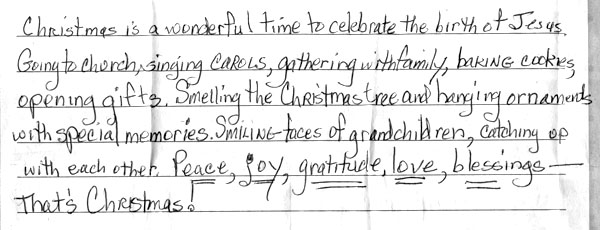 Christmas is a wonderful time to celebrate the birth of Jesus.
Going to church, singing CAROLS, gathering with family, baKING cookies,
opening gifts. Smelling the Christmas tree and hanging ornaments
with special memories. SMILING faces of grandchildren, catching up
with each other. Peace, joy, gratitude, love, blessings —
That's Christmas!